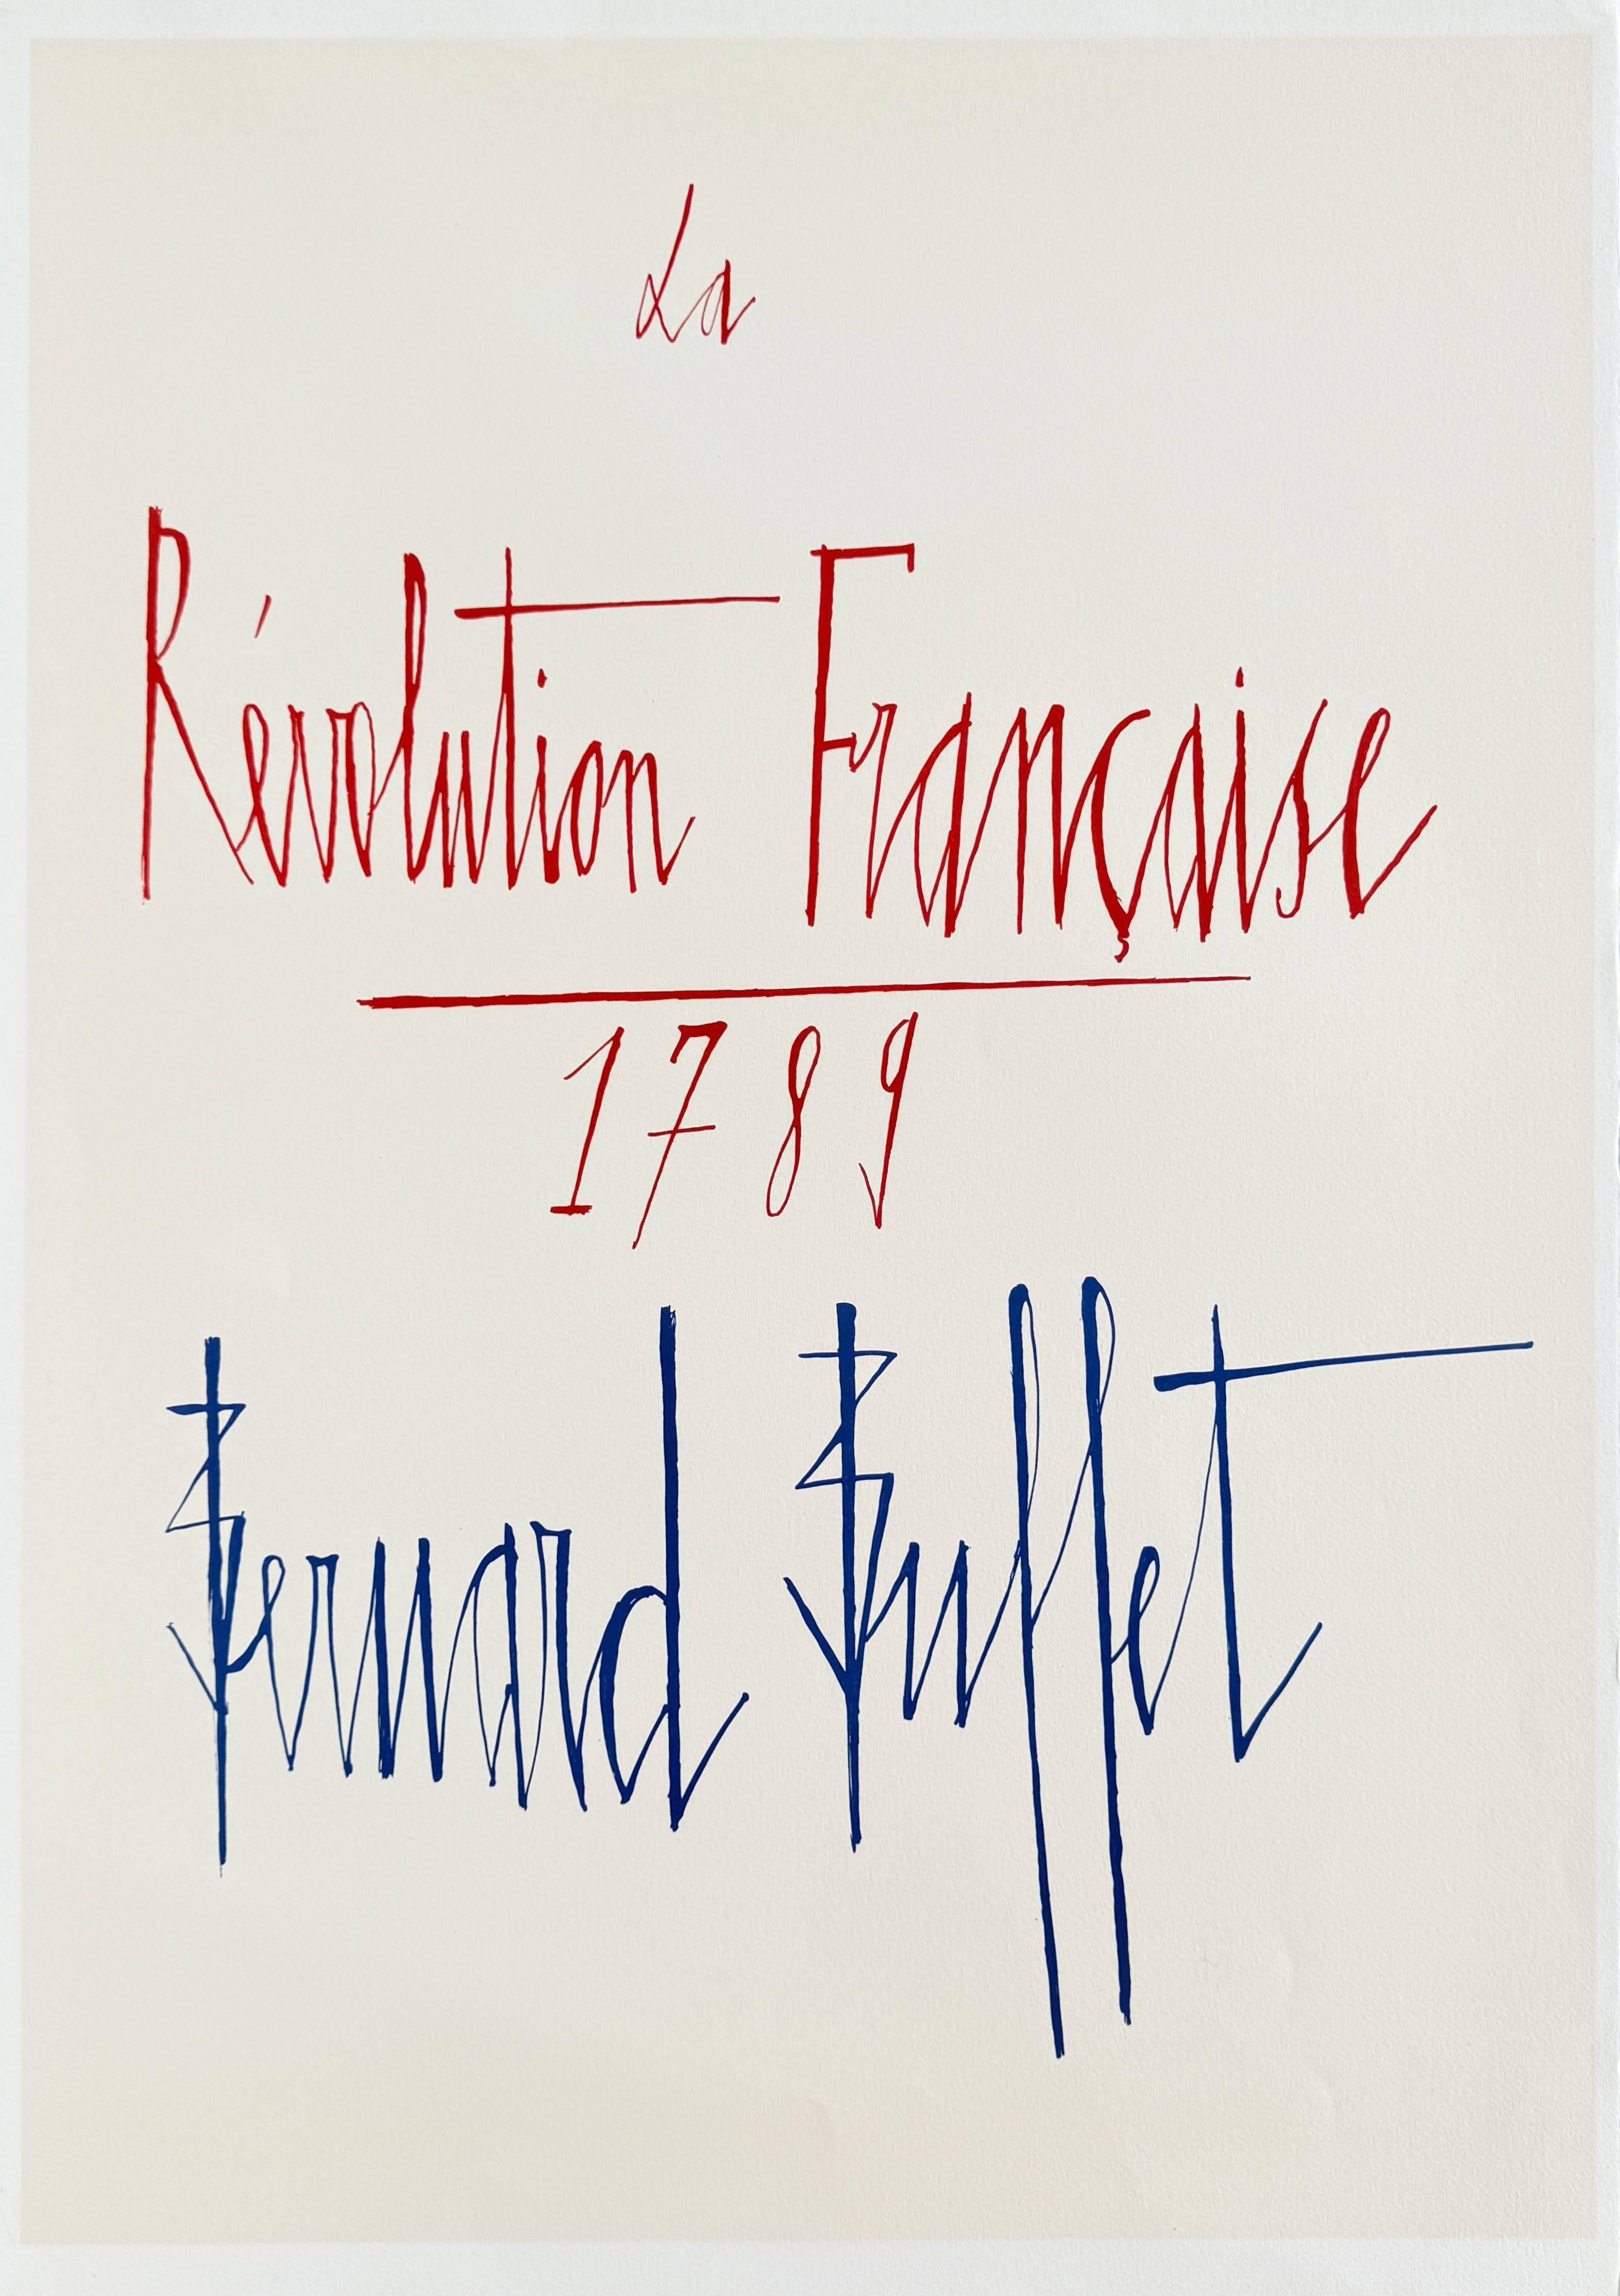 La
Révolution Française
1789
Bernard Buffet